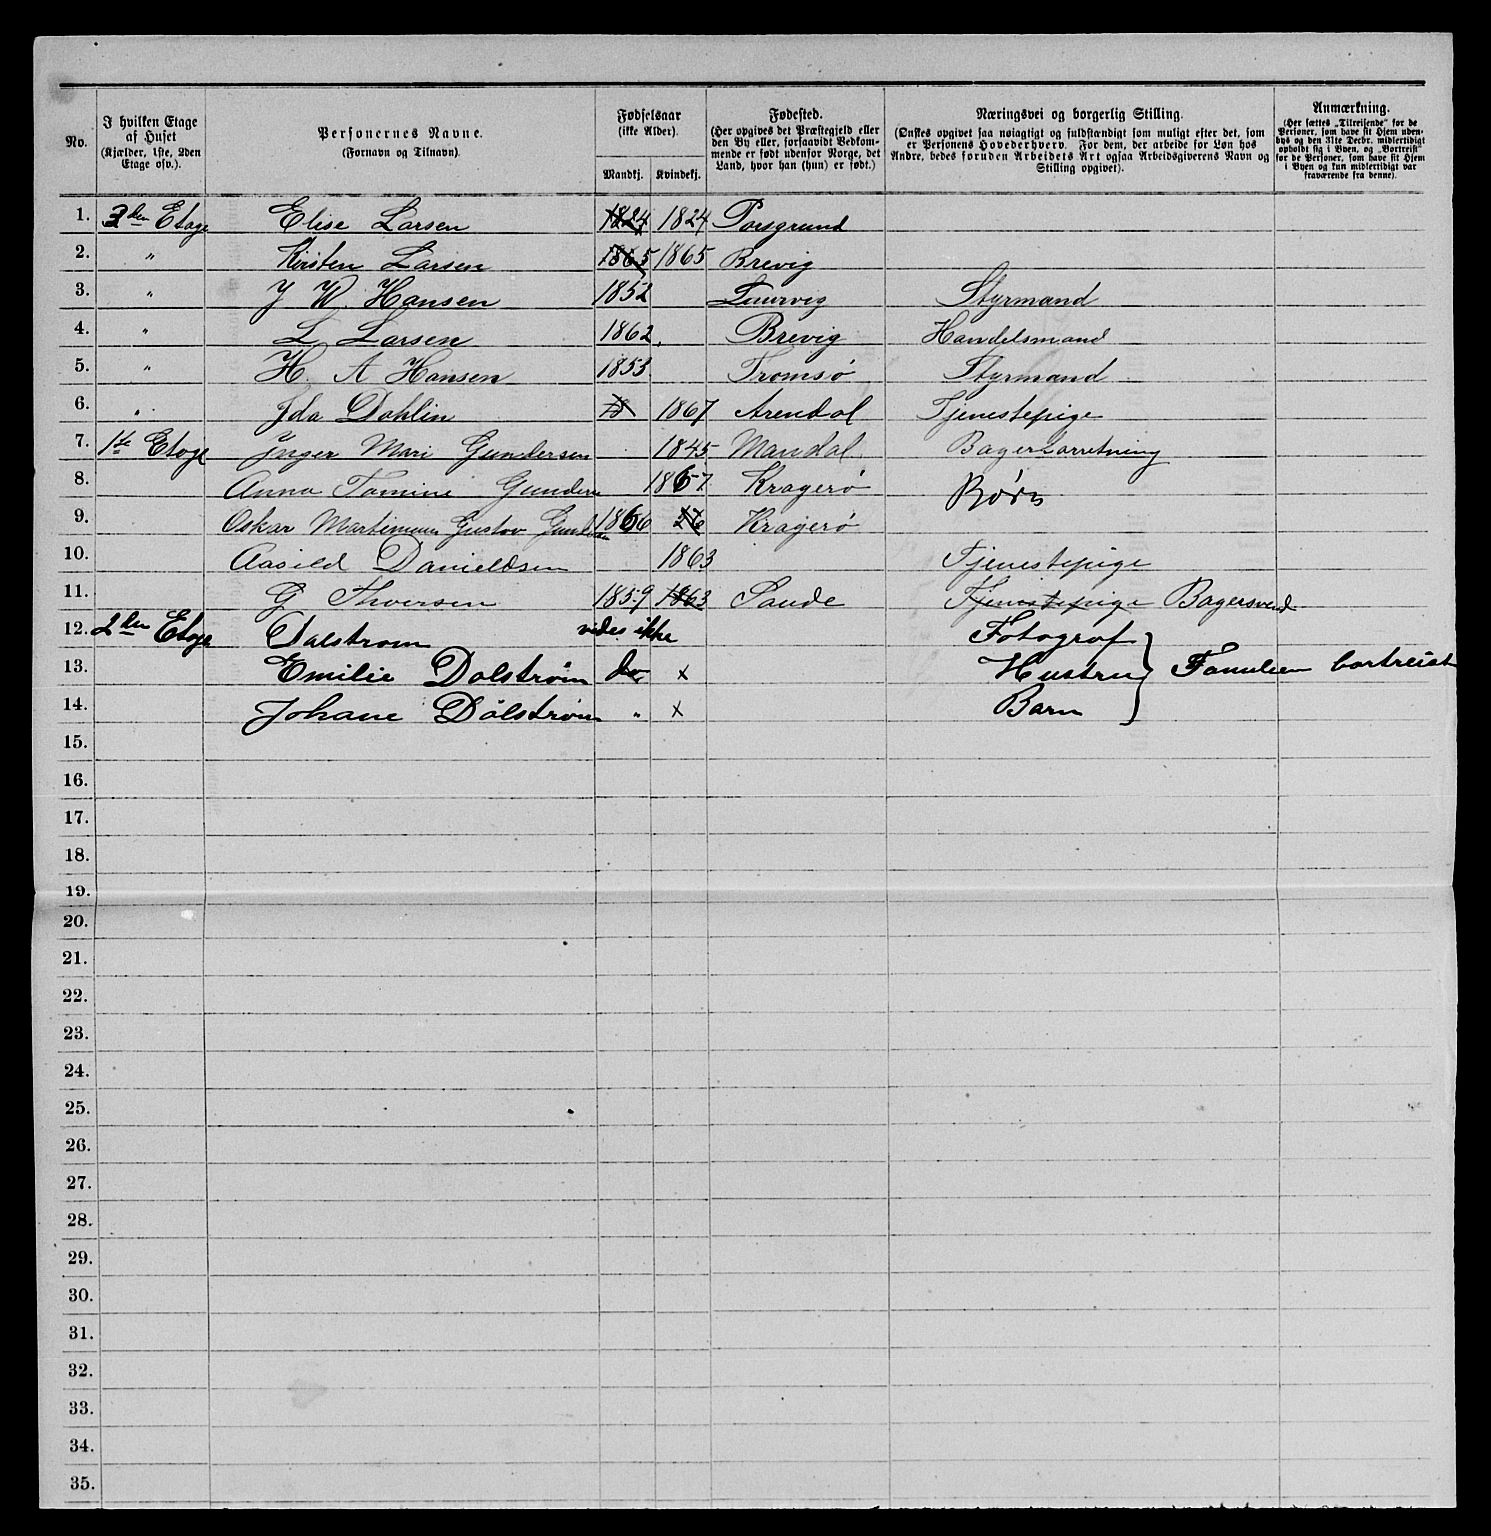 No. I hvilken Etage af Huset (Kjælder, 1ste, 2den Etage osv.). Personernes Navne. (Fornavn og Tilnavn). Fødselsaar (ikke Alder). Mandkj. Kvindekj. Fødested. (Her opgives det Præstegjeld eller den By eller, forsaavidt Vedkommende er født udenfor Norge, det Land, hvor han (hun) er født.) Næringsvei og borgerlig Stilling. (Ønskes opgivet saa nøiagtigt og fuldstændigt som muligt efter det, som er Personens Hovederhverv. For dem, der arbeide for Løn hos Andre, bedes foruden Arbeidets Art ogsaa Arbeidsgiverens Navn og Stilling opgivet). Anmærkning. (Her sættes „Tilreisende" for de Personer, som have sit Hjem udenbys og den 31te Decbr. midlertidigt opholdt sig i Byen, og „Bortreist" for de Personer, som have sit Hjem i Byen og kun midlertidigt var fraværende fra denne).
1. 3den Etage Elise Larsen 1824 1824 Porsgrund
2. " Kirsten Larsen 1865 1865 Brevig
3. " J W Hansen 1852 Laurvig Styrmand
4. " L Larsen 1862. Brevig Handelsmand
5. " H. A Hansen 1853 Tromsø Styrmand
6. " Ida Dahlin 18 1867 Arendal Tjenestepige
7. 1te Etage Inger Mari Gundersen 1845 Mandal
8. Anna Tomine 1867 Kragerø Børn
9. Oskar Gustav 1866 Kragerø
10. Aasild Danieldsen 1863 Tjenestepige
11. G Thorsen 1859 1863 Sande Tjenestepige Bagersvend
12. 2den Etage Dalstrom vides ikke Fotograf
13. Emilie Dalstrøm do x Hustru } Familien bortreist
14. Johane Dalstrøm " x Barn
15.
16.
17.
18.
19.
20.
21.
22.
23.
24.
25.
26.
27.
28.
29.
30.
31.
32.
33.
34.
35.